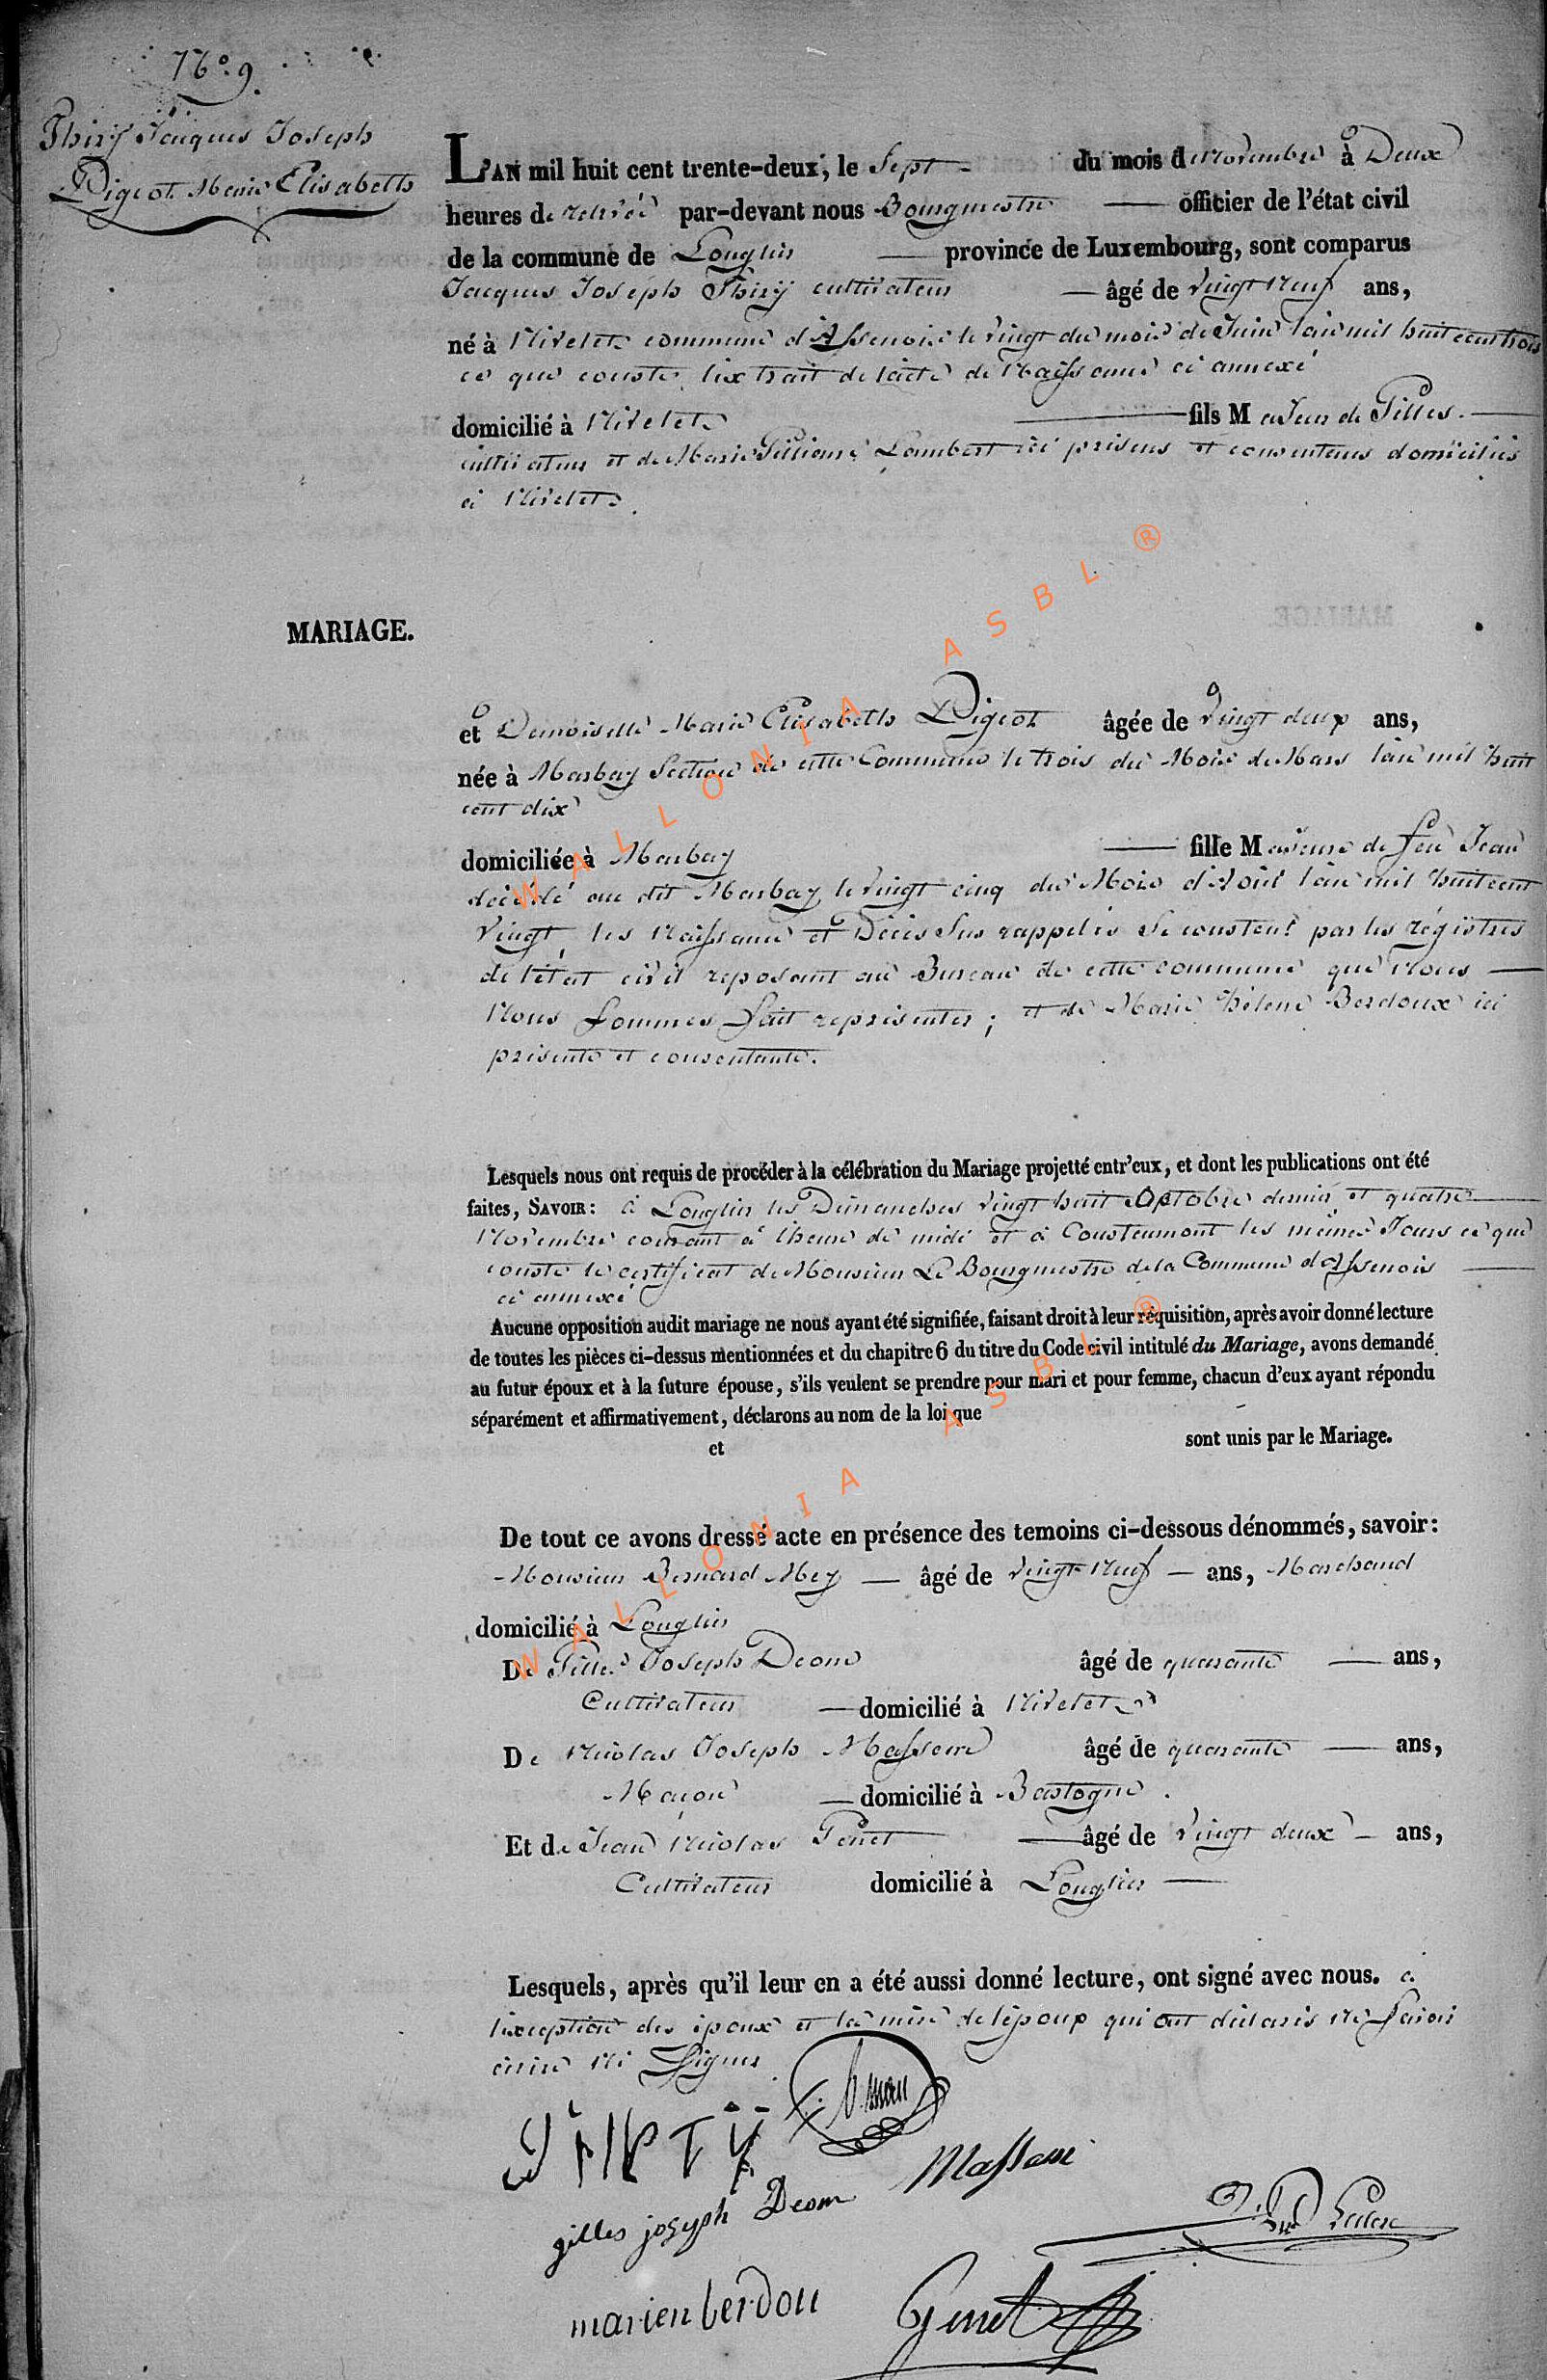 N°. 9.
Thirÿ Jacques Joseph
Digeot Marie Elisabeth
L'AN mil huit cent trente-deux, le Sept du mois de Novembre à Deux
heures de relevée par-devant nous Bourgmestre officier de l'état civil
de la commune de Longlier province de Luxembourg, sont comparus
Jacques Joseph Thirÿ cultivateur âgé de vingt neuf ans,
né à Nivelet commune d'Assenois le vingt du mois de Juin l'an mil huit cent trois
ce que conste l'extrait de l'acte de Naissance ci annexé
domicilié à Nivelet fils Majeur de Gilles
cultivateur et de Marie Lambert ici présens et consentens domiciliés
à Nivelet.
MARIAGE.
et Demoiselle Marie Elisabeth Digeot âgée de vingt deux ans,
née à Marbay Section de cette Commune le trois du Mois de Mars l'an mil huit
cent dix
domiciliée à Marbay fille Mineure de feu Jean
décédé au dit Marbay le vingt cinq du Mois d'Aout l'an mil huit cent
vingt, les Naissance et Décès sus rappelés se constent par les régistres
de l'état civil reposant au Bureau de cette commune que Nous
Nous sommes fait représenter; et de Marie hélene Berdoux ici
présente et consentante.
Lesquels nous ont requis de procéder à la célébration du Mariage projetté entr'eux, et dont les publications ont été
faites, SAVOIR: à Longlier les Dimanches vingt huit Octobre dernier et quatre
Novembre courant à l'heure de midi et à Cousteumont les mêmes Jours ce que
conste le certificat de Monsieur Le Bourgmestre de la Commune d'Assenois
ci annexé
Aucune opposition audit mariage ne nous ayant été signifiée, faisant droit à leur réquisition, après avoir donné lecture
de toutes les pièces ci-dessus mentionnées et du chapitre 6 du titre du Code civil intitulé du Mariage, avons demandé
au futur époux et à la future épouse, s'ils veulent se prendre pour mari et pour femme, chacun d'eux ayant répondu
séparément et affirmativement, déclarons au nom de la loi que
et sont unis par le Mariage.
De tout ce avons dressé acte en présence des temoins ci-dessous dénommés, savoir:
Monsieur Bernard Mey âgé de vingt Neuf ans, Marchand
domicilié à Longlier
De Gilles Joseph Deom âgé de quarante ans,
Cultivateur domicilié à Nivelet
De Nicolas Joseph Massem âgé de quarante ans,
Maçon domicilié à Bastogne.
Et de Jean Nicolas Genet âgé de vingt deux ans,
Cultivateur domicilié à Longlier
Lesquels, après qu'il leur en a été aussi donné lecture, ont signé avec nous. à
l'exception des époux et la mère de l'époux qui ont déclarés Ne savoir
écrire Ni Signer
gilles joseph Deom
marien berdou
Genet
WALLONIA ASBL ®
WALLONIA ASBL ®